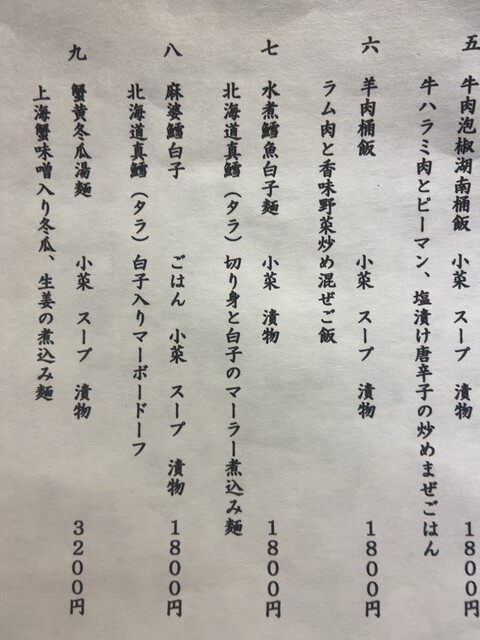 五 牛肉泡椒湖南桶飯 小菜 スープ 漬物 1800円
牛ハラミ肉とピーマン、塩漬け唐辛子の炒めまぜごはん
六 羊肉桶飯 小菜 スープ 漬物 1800円
ラム肉と香味野菜炒め混ぜご飯
七 水煮鱈魚白子麺 小菜 漬物 1800円
北海道真鱈（タラ）切り身と白子のマーラー煮込み麺
八 麻婆鱈白子 ごはん 小菜 スープ 漬物 1800円
北海道真鱈（タラ）白子入りマーボードーフ
九 蟹黄冬瓜湯麺 小菜 スープ 漬物 3200円
上海蟹味噌入り冬瓜、生姜の煮込み麺